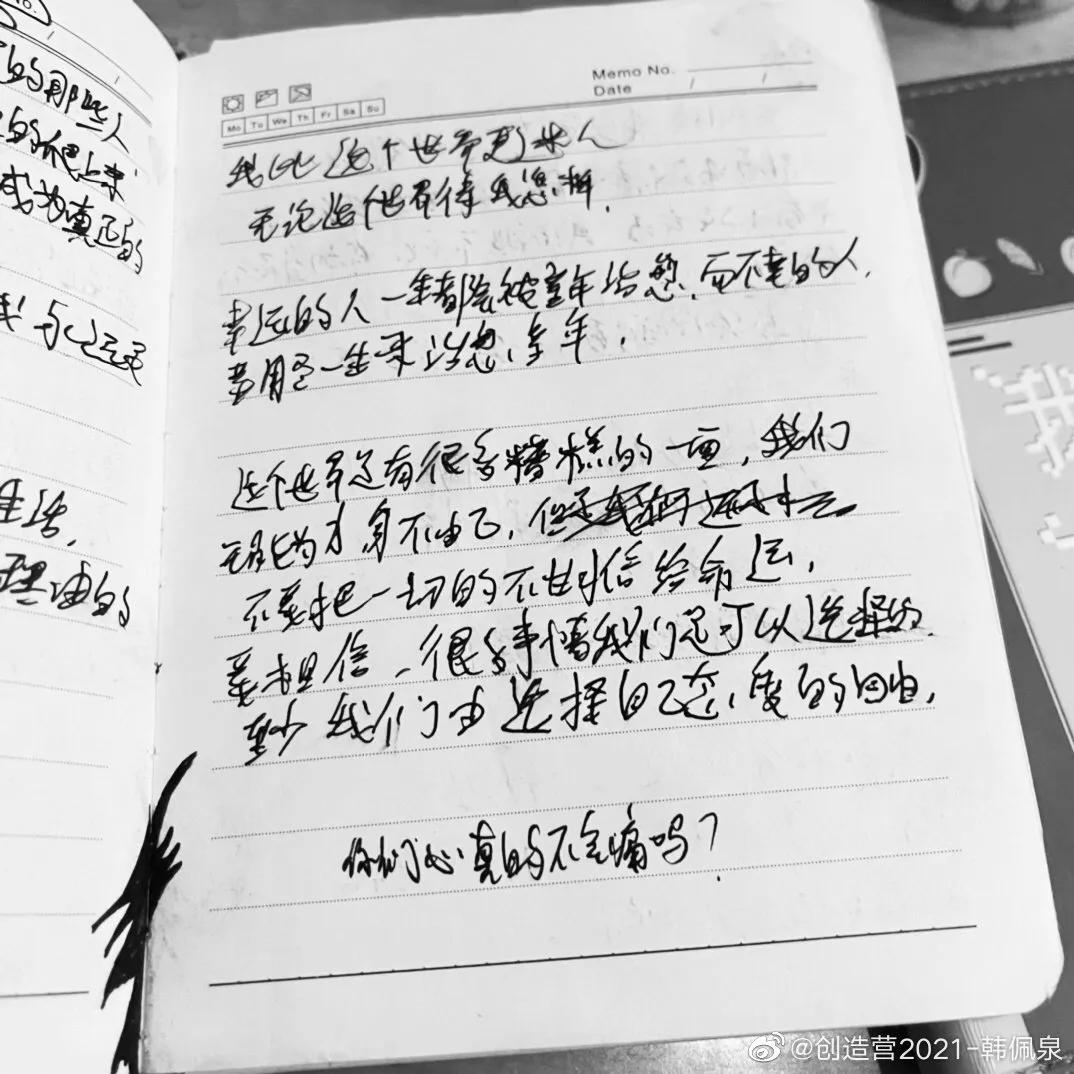 的那些人
的爬上来
成为真正的
生活.
理由的
Memo No.
Date / /
Mo Tu We Th Fr Sa Su
我比这个世界更迷人
无论这个世界待我怎样.
幸运的人一生都会被童年治愈,而不幸的人.
要用尽一生来治愈童年.
这个世界还有很多糟糕的一面,我们
无能为力身不由己,但
不要把一切的不甘对信给命运,
要相信,很多事情我们是可以选择的.
至少我们有选择自己态度的自由.
你们心真的不会痛吗?
@创造营2021-韩佩泉